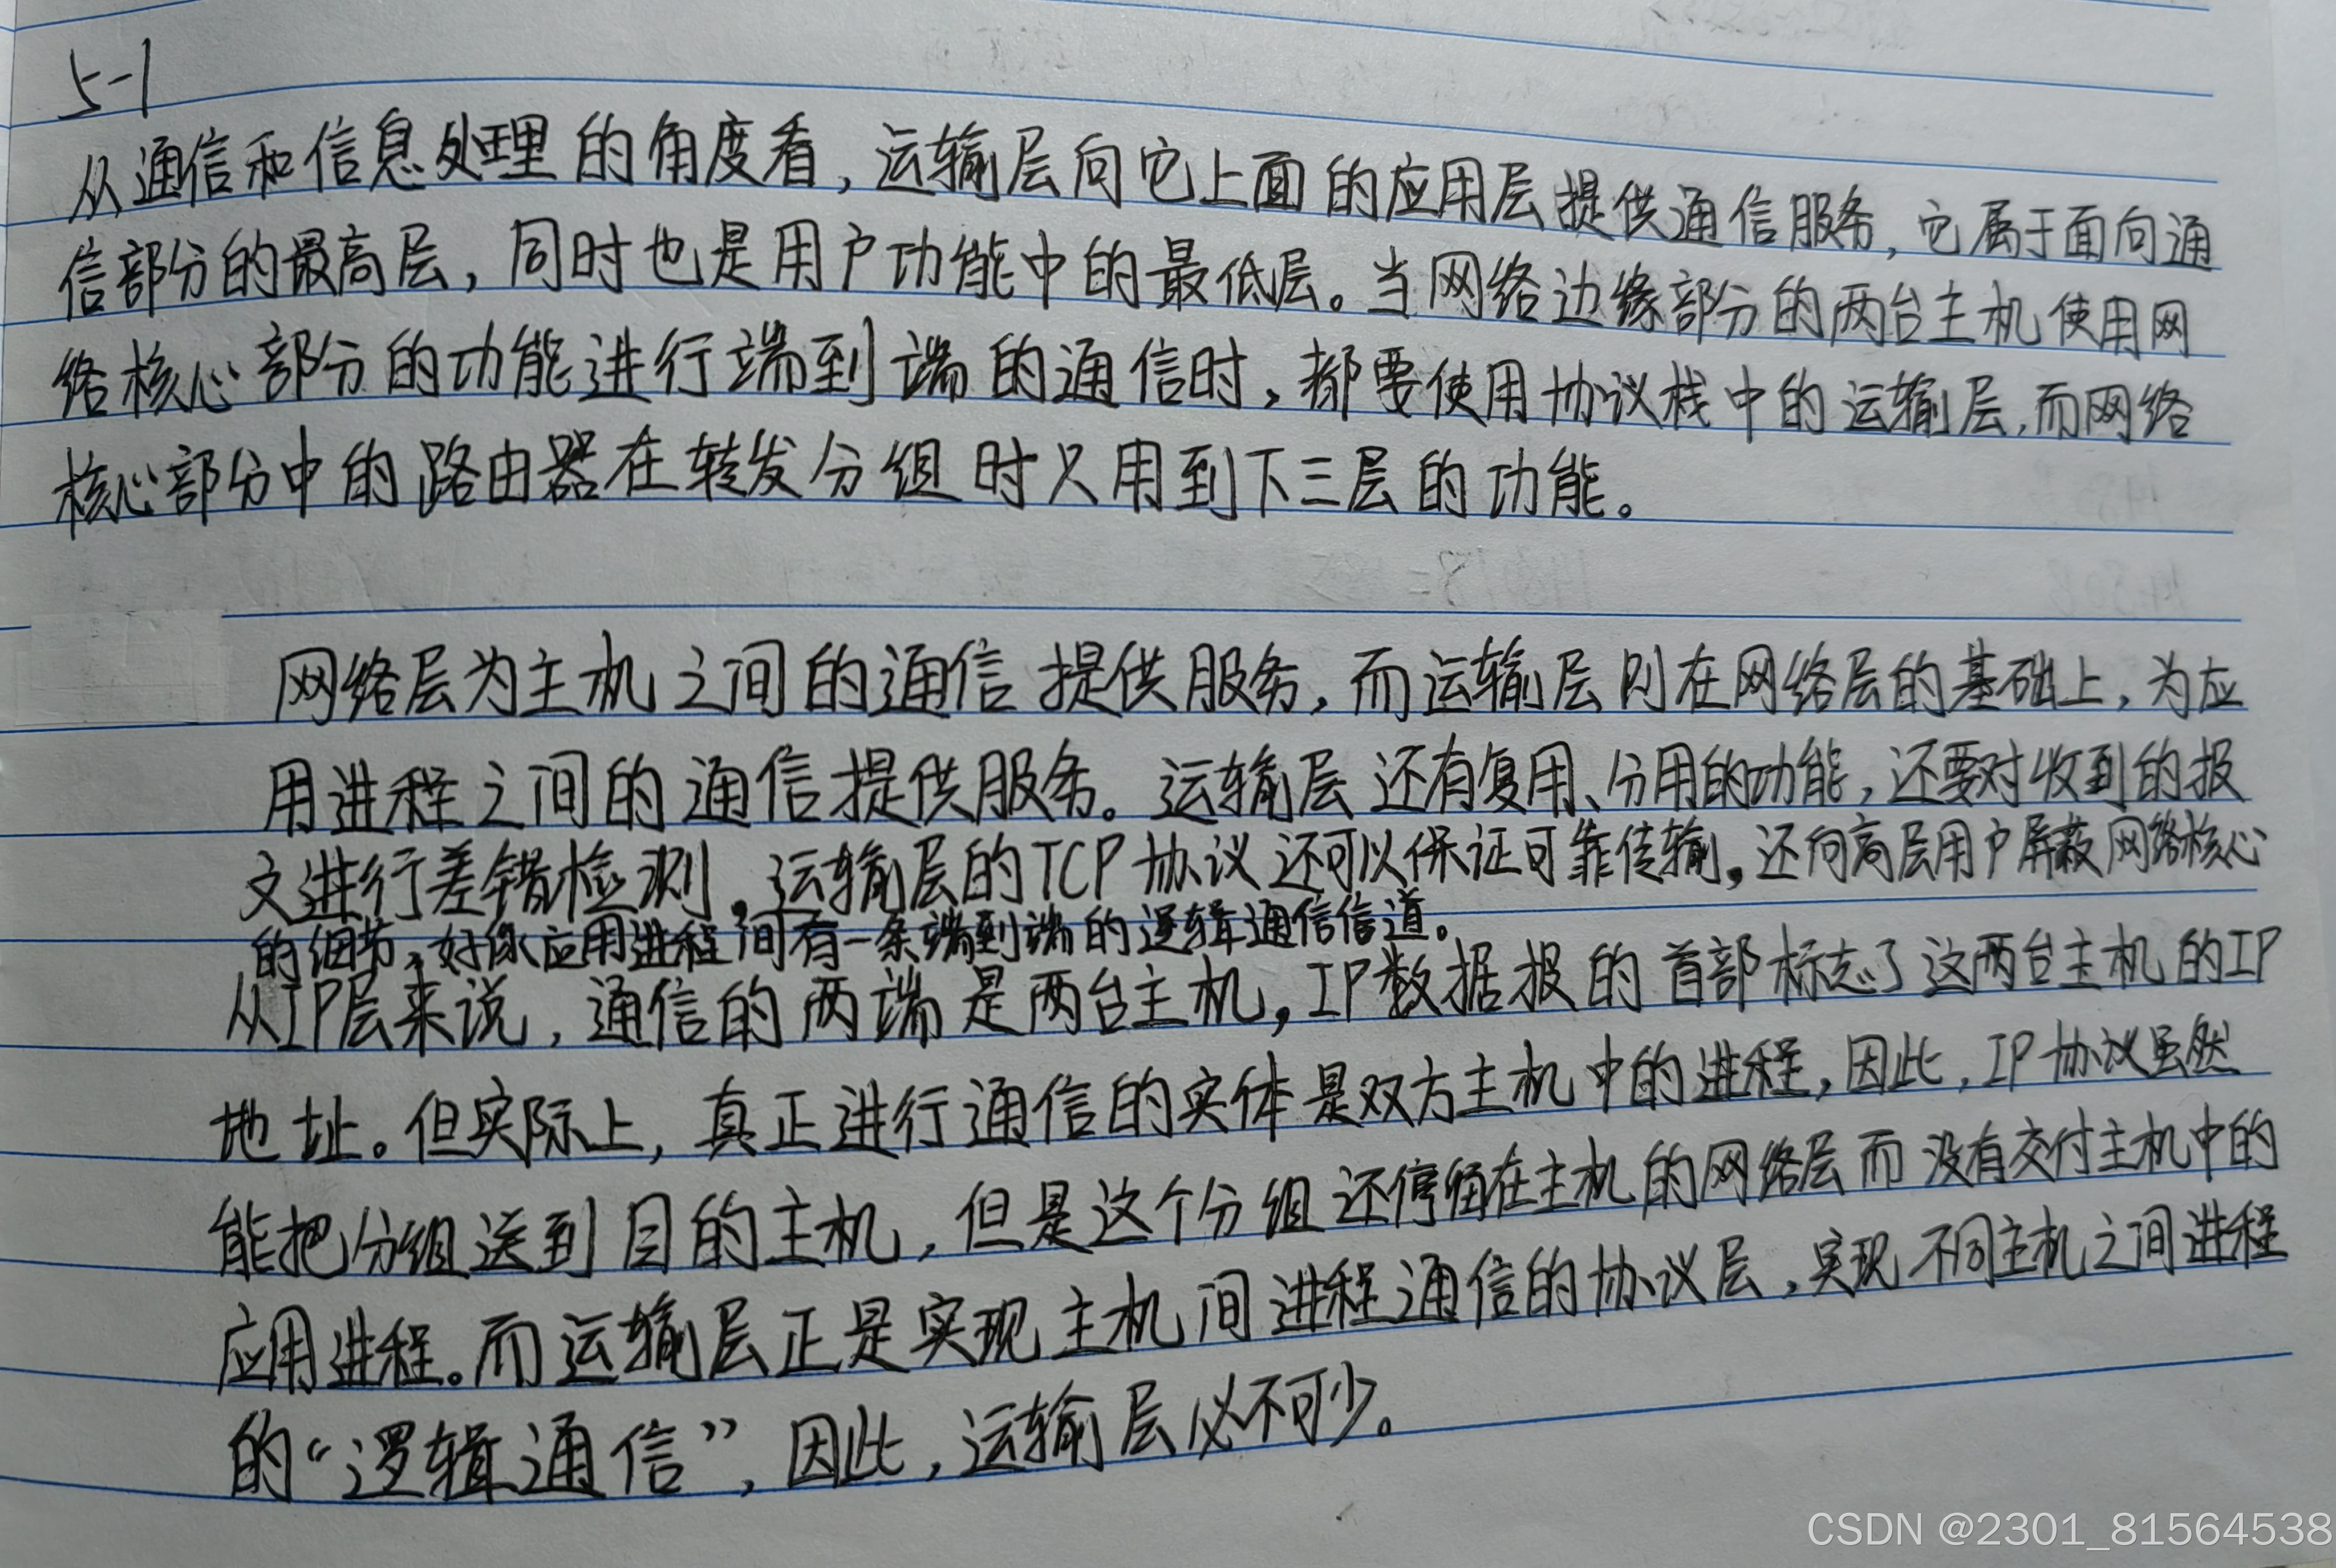 5-1
从通信和信息处理的角度看,运输层向它上面的应用层提供通信服务,它属于面向通
信部分的最高层,同时也是用户功能中的最低层。当网络边缘部分的两台主机使用网
络核心部分的功能进行端到端的通信时,都要使用协议栈中的运输层,而网络
核心部分中的路由器在转发分组时只用到下三层的功能。
网络层为主机之间的通信提供服务,而运输层则在网络层的基础上,为应
用进程之间的通信提供服务。运输层还有复用、分用的功能,还要对收到的报
文进行差错检测。运输层的TCP协议还可以保证可靠传输,还向高层用户屏蔽网络核心
的细节,好像应用进程间有一条端到端的逻辑通信信道。
从IP层来说,通信的两端是两台主机,IP数据报的首部标志了这两台主机的IP
地址。但实际上,真正进行通信的实体是双方主机中的进程,因此,IP协议虽然
能把分组送到目的主机,但是这个分组还停留在主机的网络层而没有交付主机中的
应用进程。而运输层正是实现主机间进程通信的协议层,实现不同主机之间进程
的“逻辑通信”,因此,运输层必不可少。
CSDN @2301_81564538